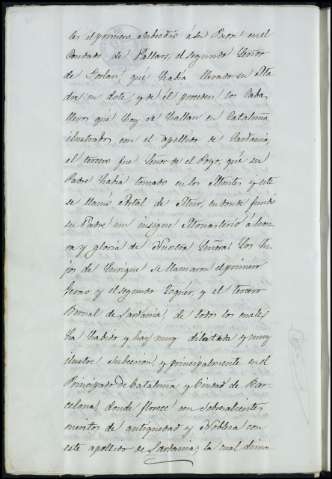 les el primero subcedió á su Padre en el
Condado de Pallars, el segundo Señor
de que había llevado su Ma-
dre en dote, y de él proceden los Caba-
lleros que hoy se hallan en Cataluña
ilustrados con el apellido de Sardania,
el tercero fue Señor de el Poyo, que su
Padre había tomado en los Montes, y este
se llamó Portal de en donde fundó
su Padre un insigne Monasterio á hon-
ra y gloria de Nuestra Señora. Los hi-
jos de Enrique se llamaron el primero
y el segundo y el tercero
Bernal de Sardania, de todos los cuales
ha habido y hay muy dilatada y muy
ilustre subcecion, y principalmente en el
Principado de Cataluña y Ciudad de Bar-
celona, donde florece con sobresalientes
meritos de antiguedad y Nobleza con
este apellido de Sardania; la cual dima-